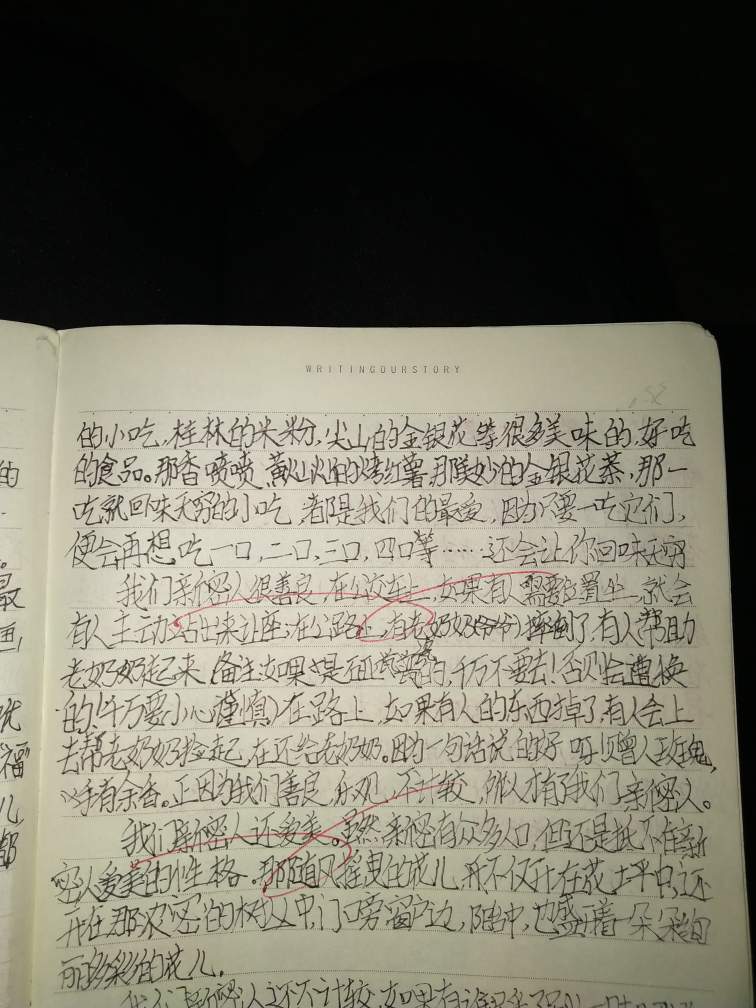 WRITINGOURSTORY
的小吃,桂林的米粉,尖山的金银花等很多美味的,好吃
的食品。那香喷喷、黄灿灿的烤红薯,那美妙的金银花茶,那一
吃就回味无穷的小吃,都是我们的最爱,因为只要一吃它们,
便会再想吃一口,二口,三口,四口等……还会让你回味无穷
我们新密人很善良,在公交车上,如果有人需要位置坐,就会
有人主动站出来让座;在公路上,有老奶奶(爷爷)摔倒了,有人帮助
老奶奶起来,备注:如果是碰瓷的,千万不要去!否则会遭
的!(千万要小心谨慎)在路上,如果有人的东西掉了,有人会上
去帮老奶奶捡起,在还给老奶奶。因为一句话说的好 呀!赠人玫瑰,
手有余香。正因为我们善良,乐观,不计较,所以才有了我们新密人。
我们新密人还爱美。虽然新密有众多人口,但还是抵不住新
密人爱美的性格。那随风摇曳的花儿,不仅开在花坪中,还
开在那浓密的树丛中,门口旁,窗户边,随中,也盛开着一朵朵绚
丽多彩的花儿。
的
最
画
福"
儿
都